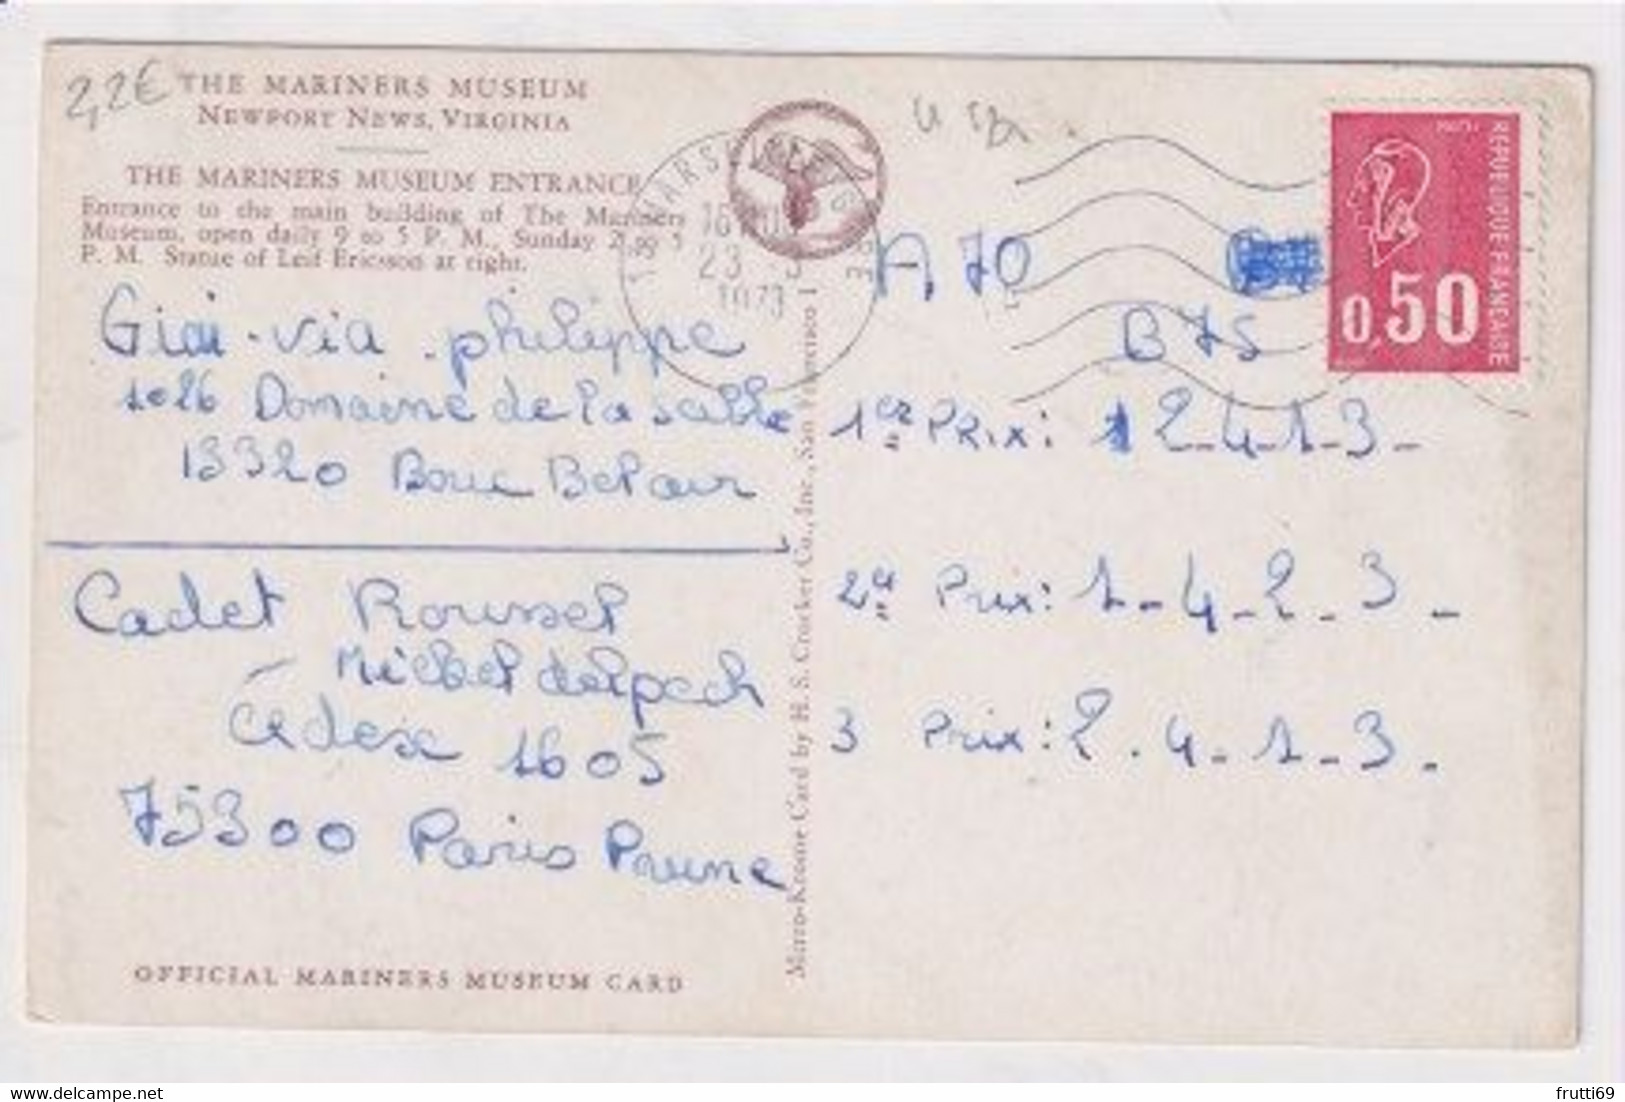 2,2€
THE MARINERS MUSEUM
NEWPORT NEWS, VIRGINIA
THE MARINERS MUSEUM ENTRANCE
Entrance to the main building of The Mariners
Museum, open daily 9 to 5 P. M., Sunday 2 to 5
P. M. Statue of Leif Ericsson at right.
Giai-via philippe
1026 Domaine de la salle
13320 Bouc Bel air
Cadet Roussel
Michel delpech
Cédex 1605
75300 Paris Brune
OFFICIAL MARINERS MUSEUM CARD
Mirro-Krome Card by H. S. Crocker Co., Inc., San Francisco 1
13 MARSEILLE
23
1973
REPUBLIQUE FRANCAISE
0,50
A 70
B 75
1er PRix: 2-4-1-3-
2e Prix: 1-4-2-3-
3 Prix: 2.4-1-3-
frutti69